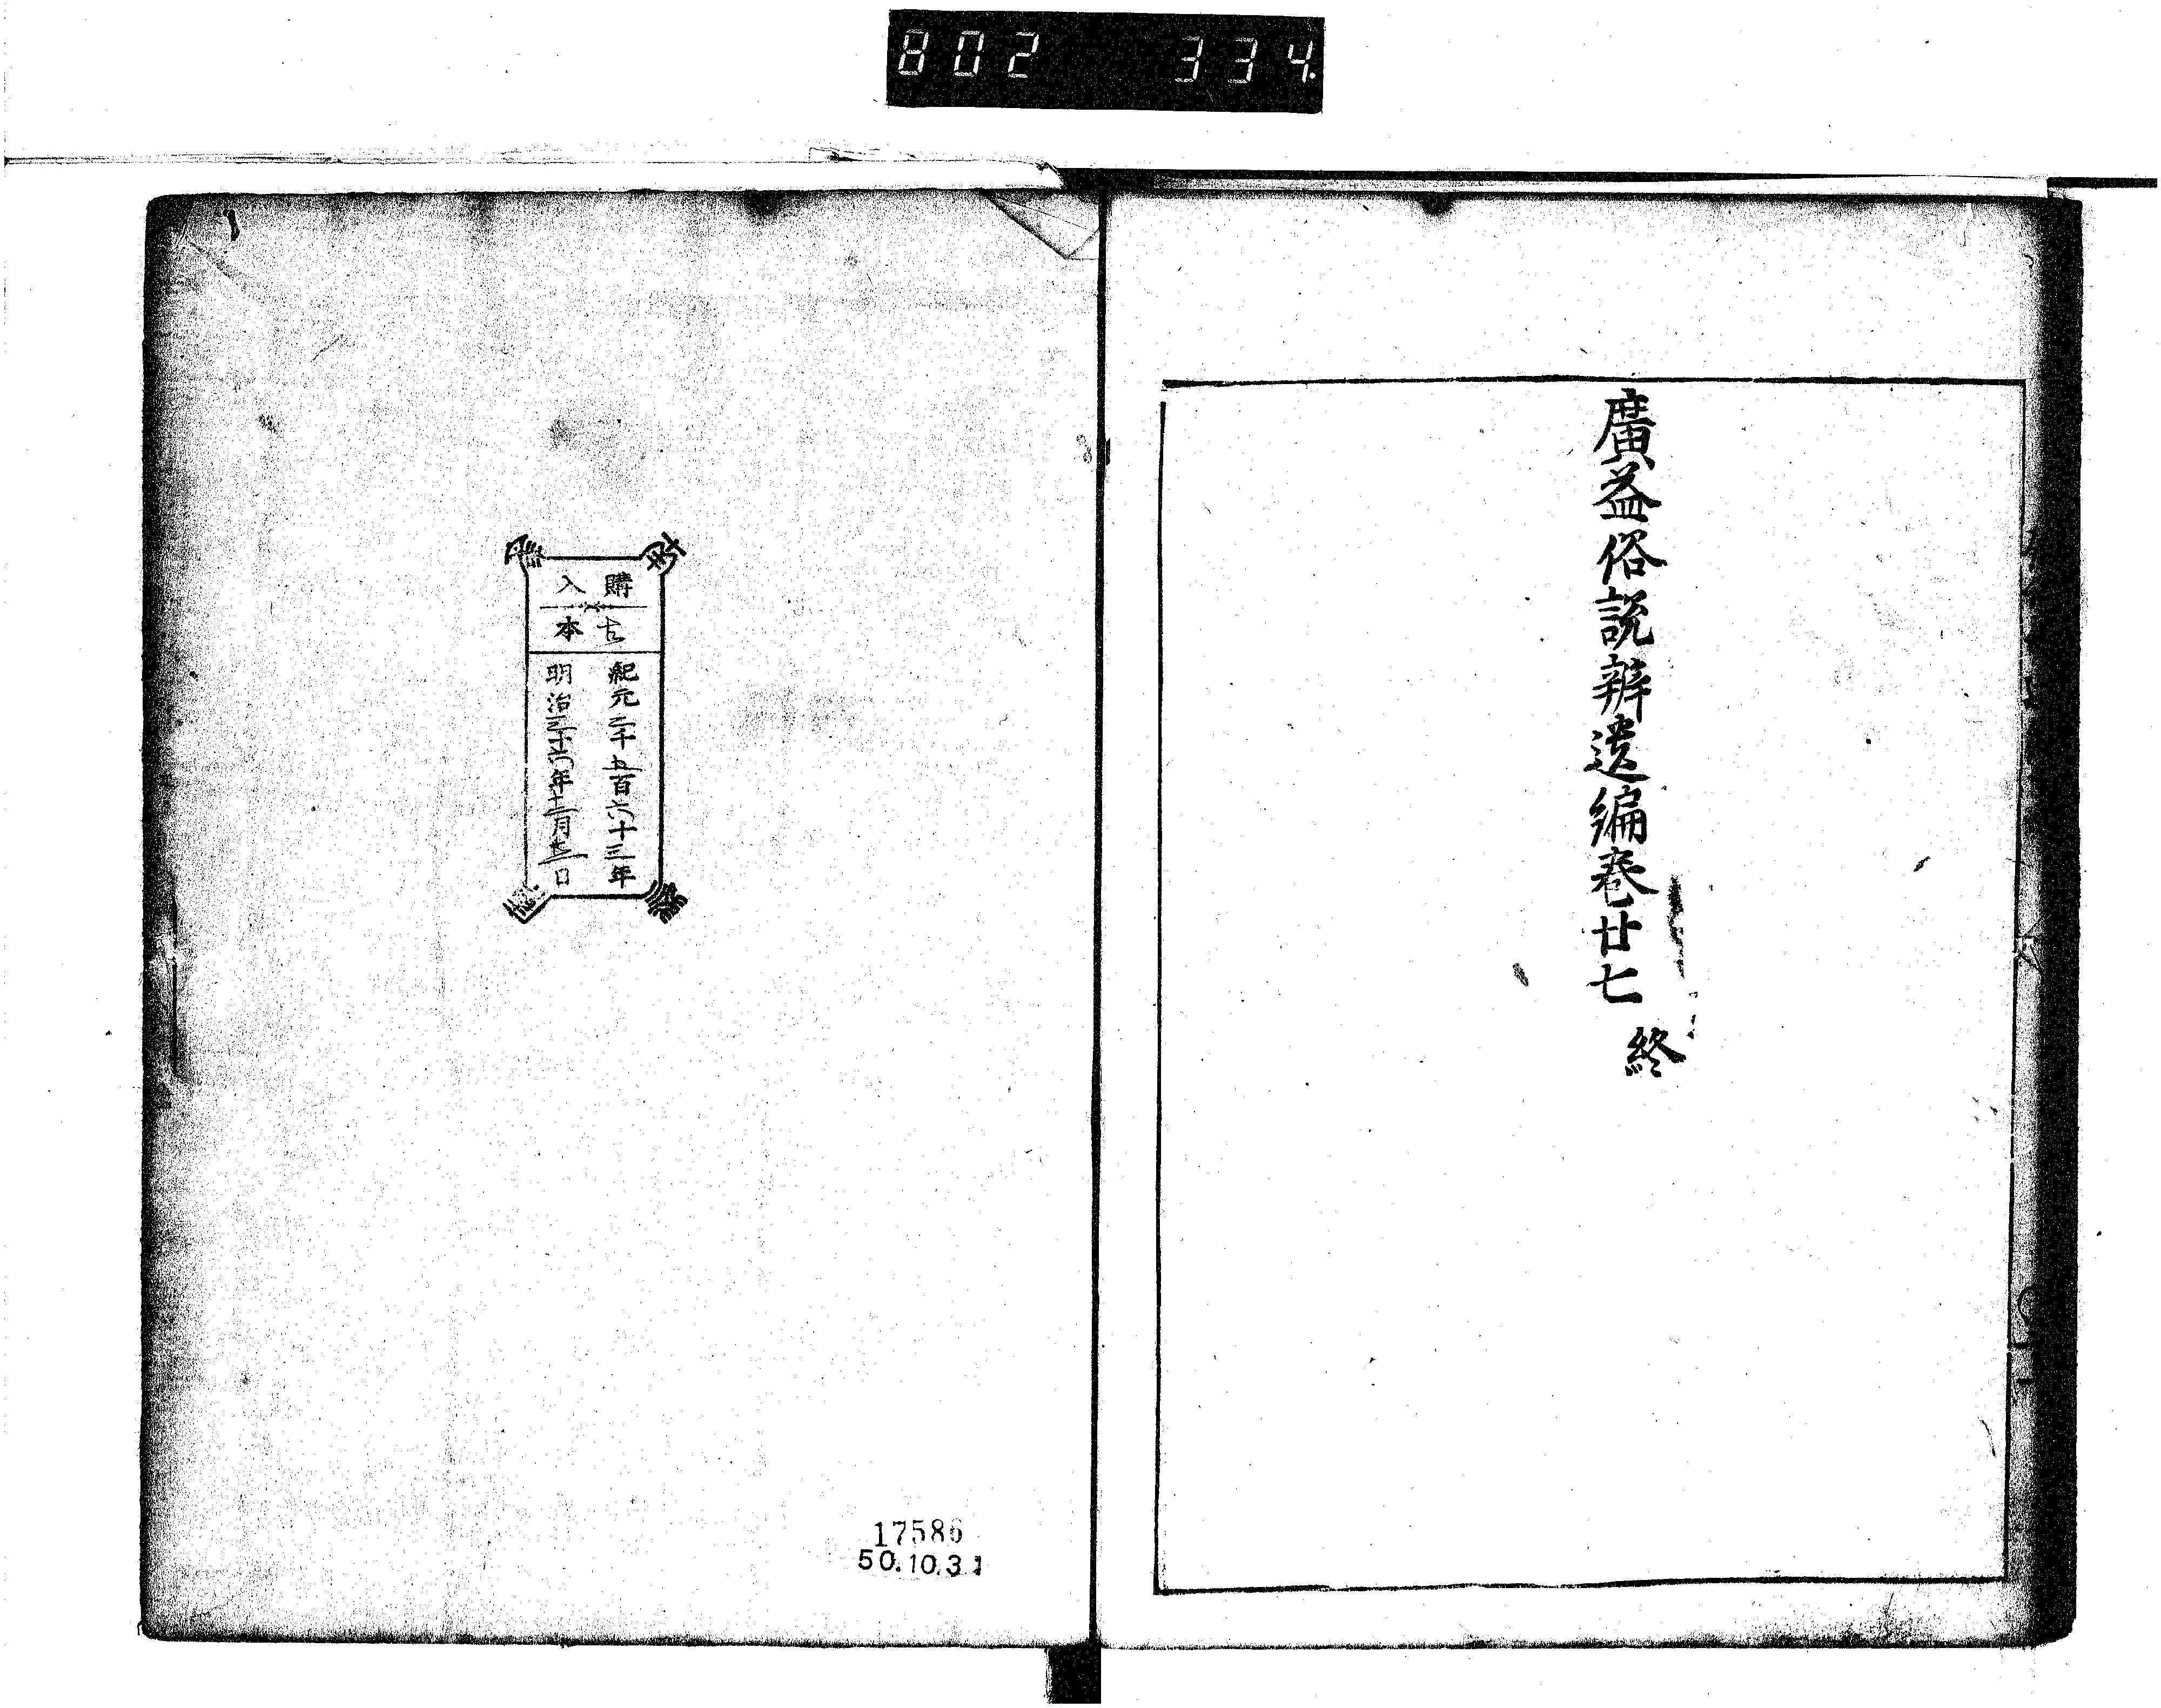 802 334
廣益俗說辨遺編卷廿七 終
購入
古本
紀元二千五百六十三年
明治三十六年十二月 日
17586
50.10.31